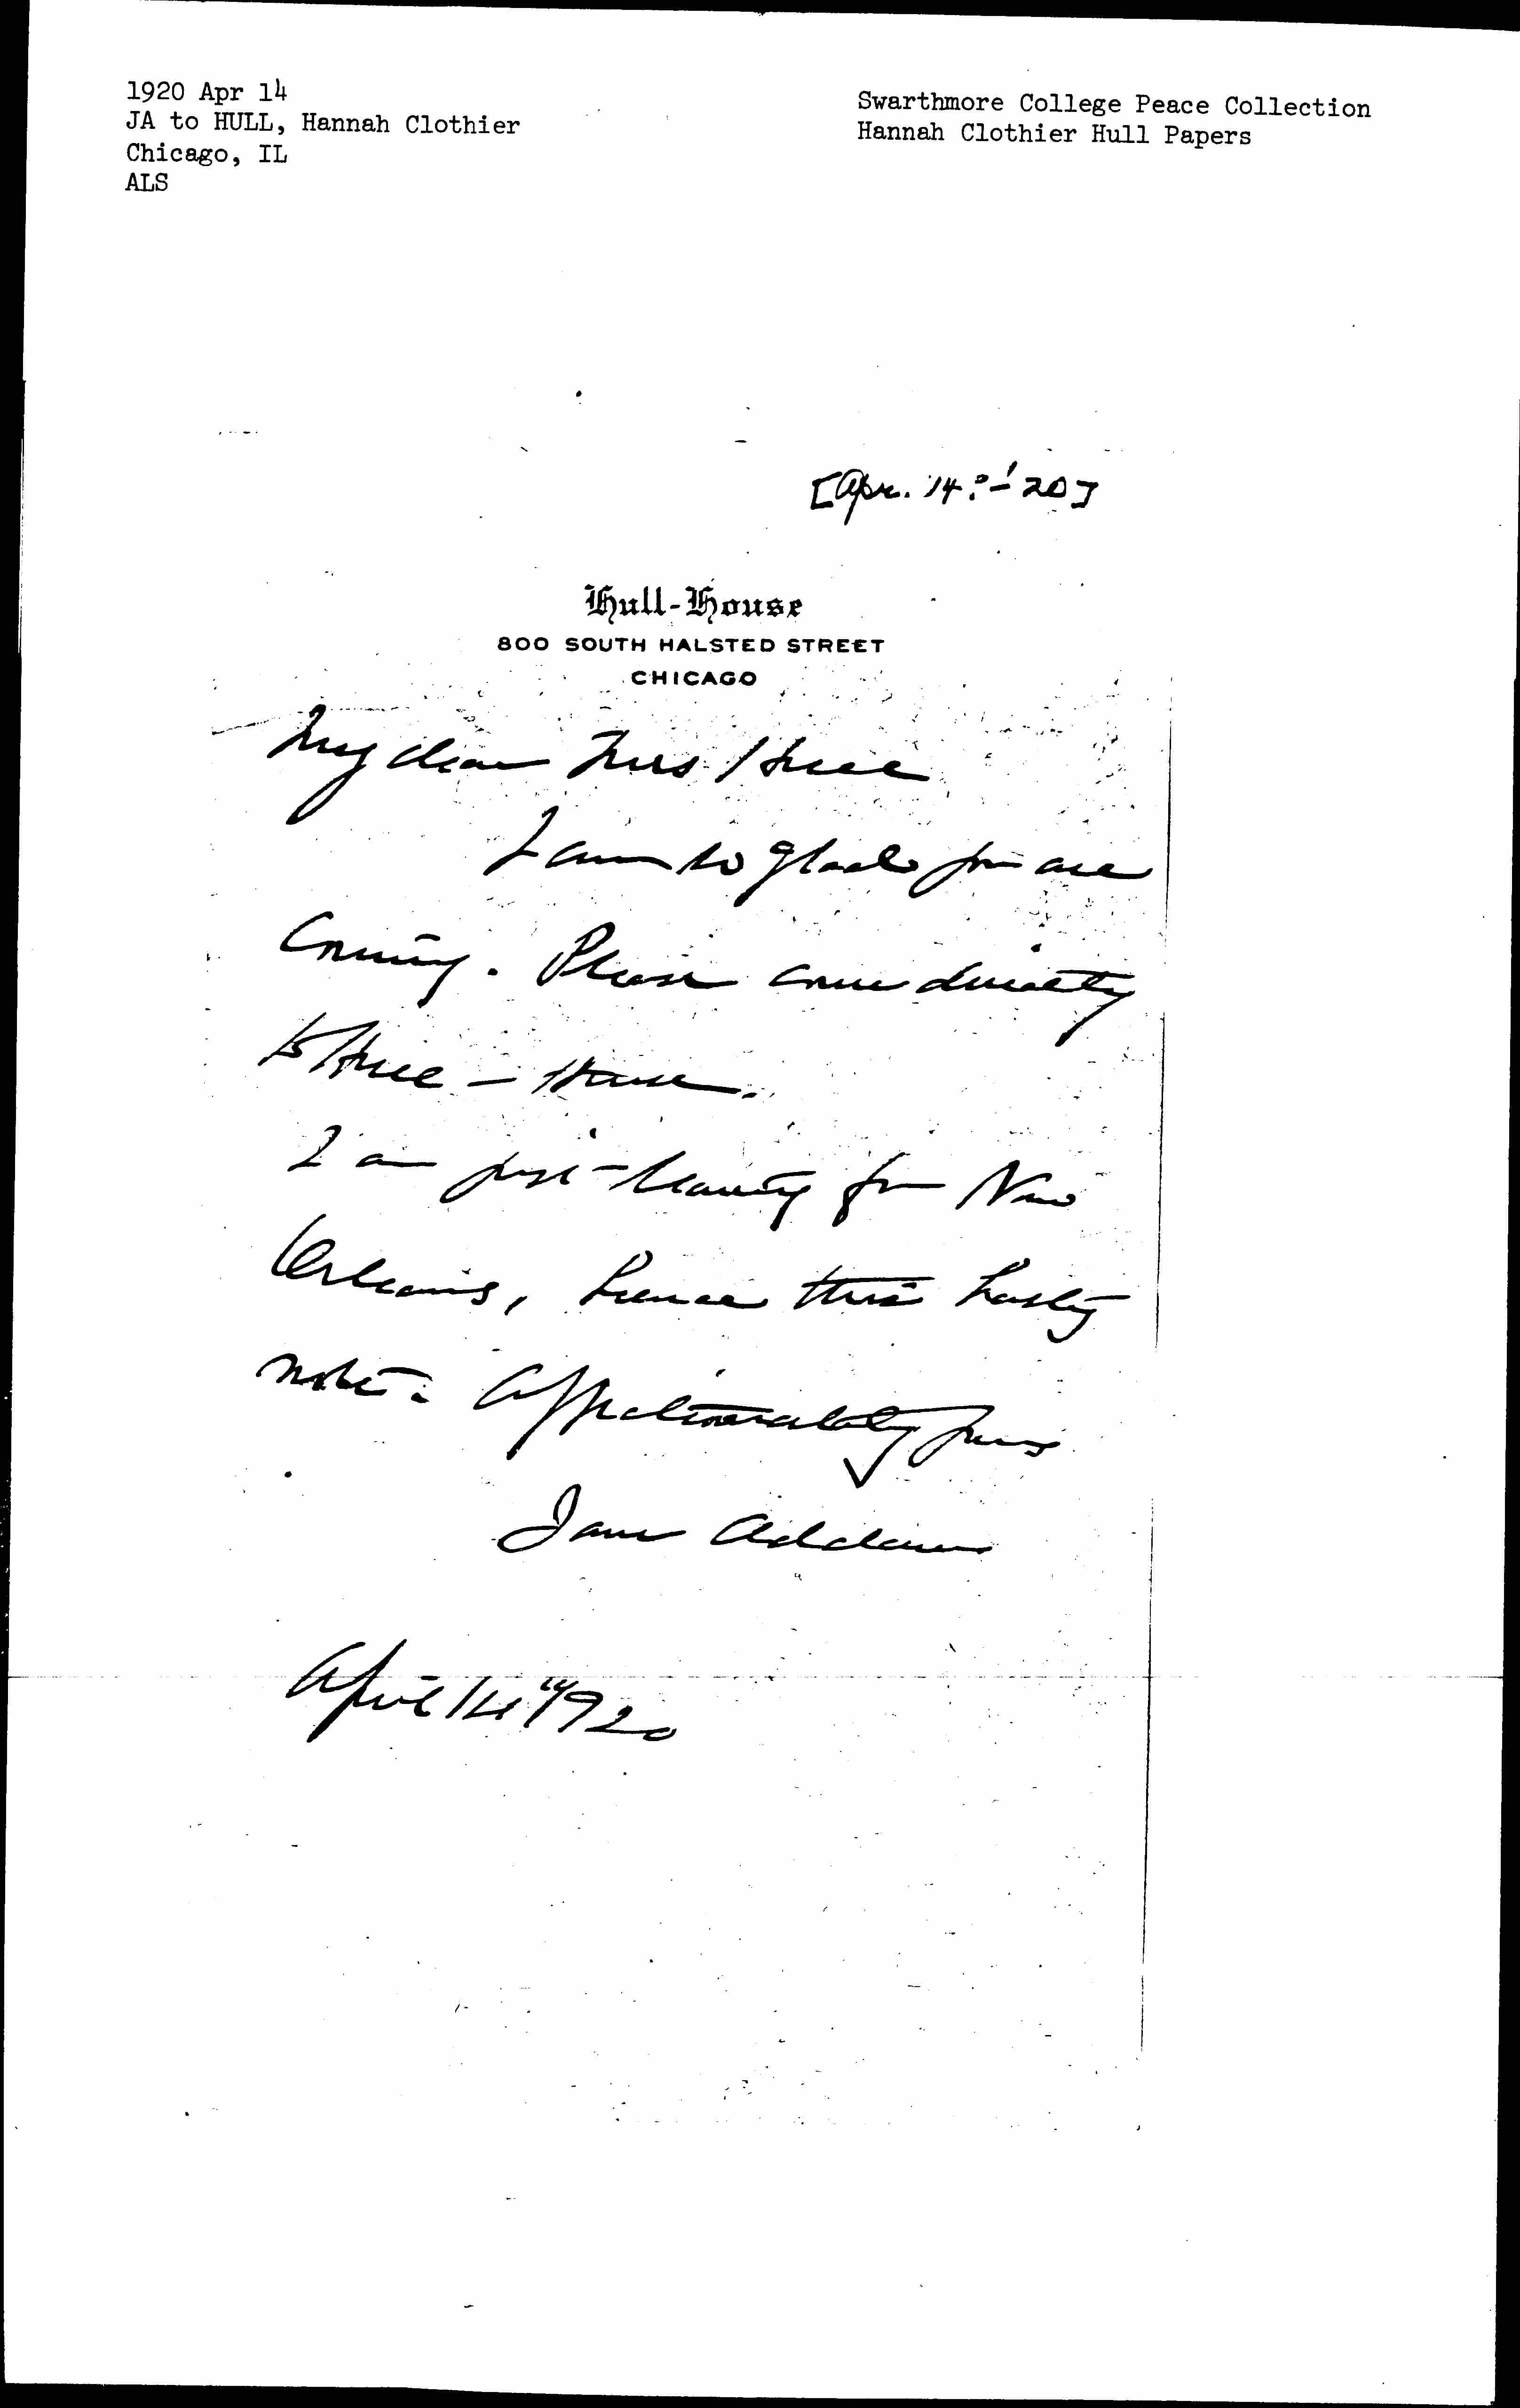 1920 Apr 14
JA to HULL, Hannah Clothier
Chicago, IL
ALS
Swarthmore College Peace Collection
Hannah Clothier Hull Papers
[Apr. 14?-'20]
Hull-House
800 SOUTH HALSTED STREET
CHICAGO
My dear Mrs Hull
I am so glad you are
coming. Please come directly
to Hull-House.
I am just leaving for New
Orleans, hence this hasty
note. Affectionately yours
Jane Addams
April 14" 1920